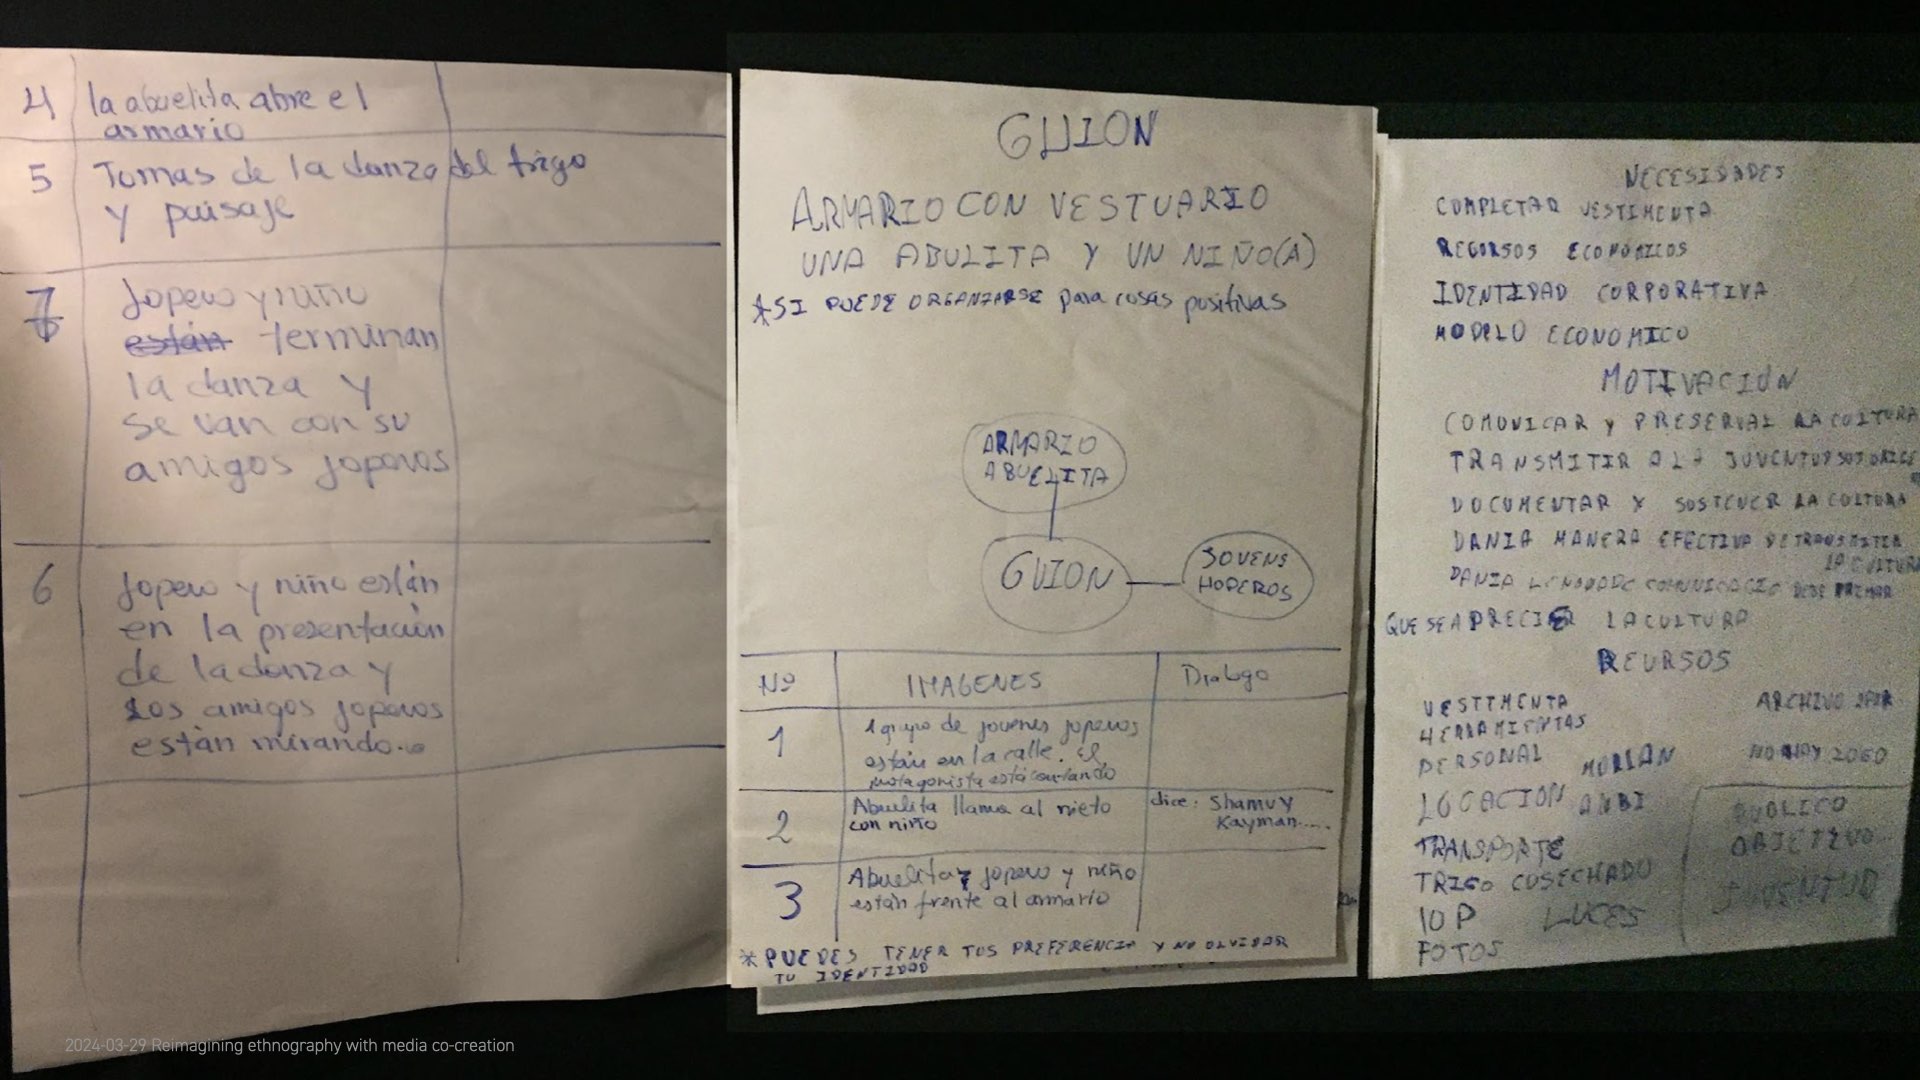 4
la abuelita abre el
armario
5
Tomas de la danza del trigo
y paisaje
7
Jopero y niño
están terminan
la danza y
se van con su
amigos joperos
6
Jopero y niño están
en la presentación
de la danza y
Los amigos joperos
están mirando.
GUION
ARMARIO CON VESTUARIO
UNA ABULITA Y UN NIÑO(A)
*SI PUEDE ORGANIZARSE para cosas positivas
ARMARIO
ABUELITA
GUION
JOVENS
HOPEROS
Nº IMAGENES Dialogo
1
1 grupo de jovenes joperos
están en la calle. El
protagonista está cantando
2
Abuelita llama al nieto
con niño
dice: Shamuy
Kayman....
3
Abuelita y jopero y niño
están frente al armario
*PUEDES TENER TUS PREFERENCIA Y NO OLVIDAR
TU IDENTIDAD
NECESIDADES
COMPLETAR VESTIMENTA
RECURSOS ECONOMICOS
IDENTIDAD CORPORATIVA
MODELO ECONOMICO
MOTIVACION
COMUNICAR Y PRESERVAL LA CULTURA
TRANSMITIR A LA JUVENTUD
DOCUMENTAR Y SOSTENER LA CULTURA
DANZA MANERA EFECTIVA DE TRANSMITIR
LA CULTURA
DANZA
QUE SEA PRECIER LA CULTURA
REURSOS
VESTIMENTA
HERRAMIENTAS
PERSONAL
LOCACION
TRANSPORTE
TRIGO COSECHADO
10 P LUCES
FOTOS
ARCHIVO
NO HAY 2060
PUBLICO
OBJETIVO
JUVENTUD
2024-03-29 Reimagining ethnography with media co-creation